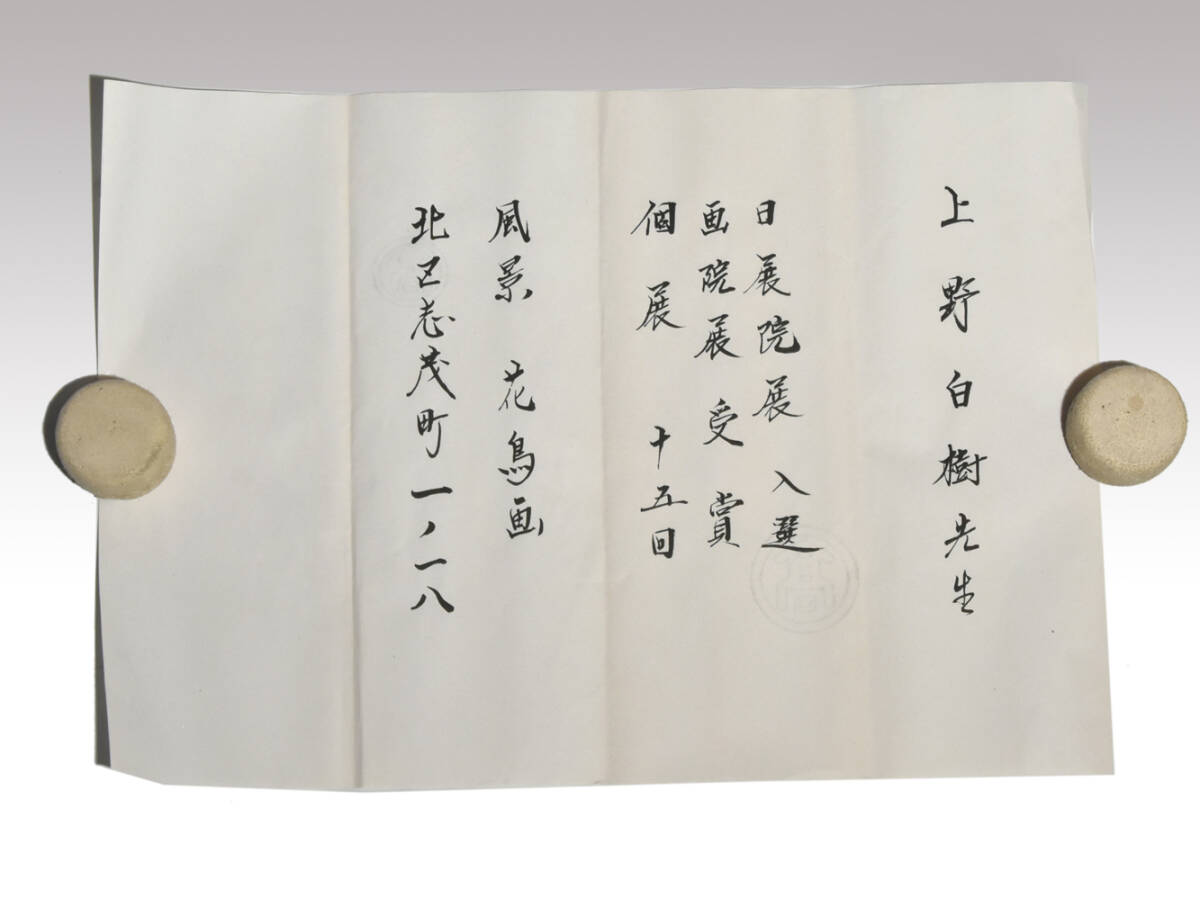 上野白樹先生
日展院展入選
画院展受賞
個展 十五回
風景 花鳥画
北区志茂町一ノ一八